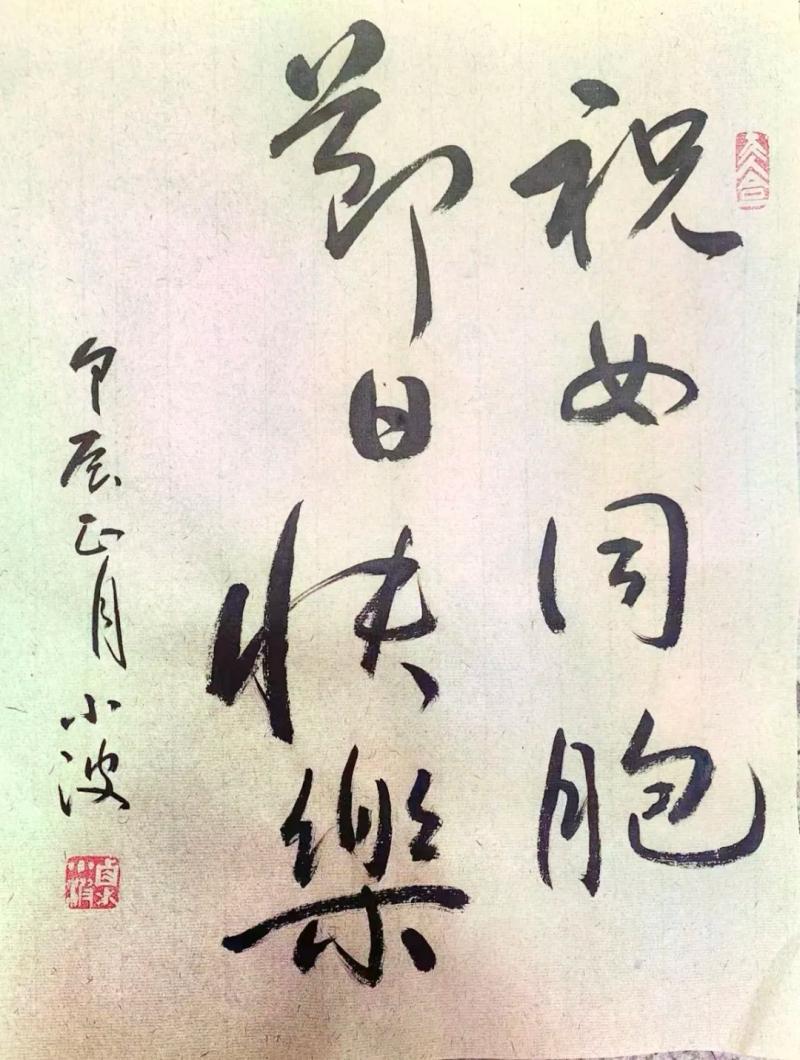 祝女同胞
節日快樂
甲辰正月小波